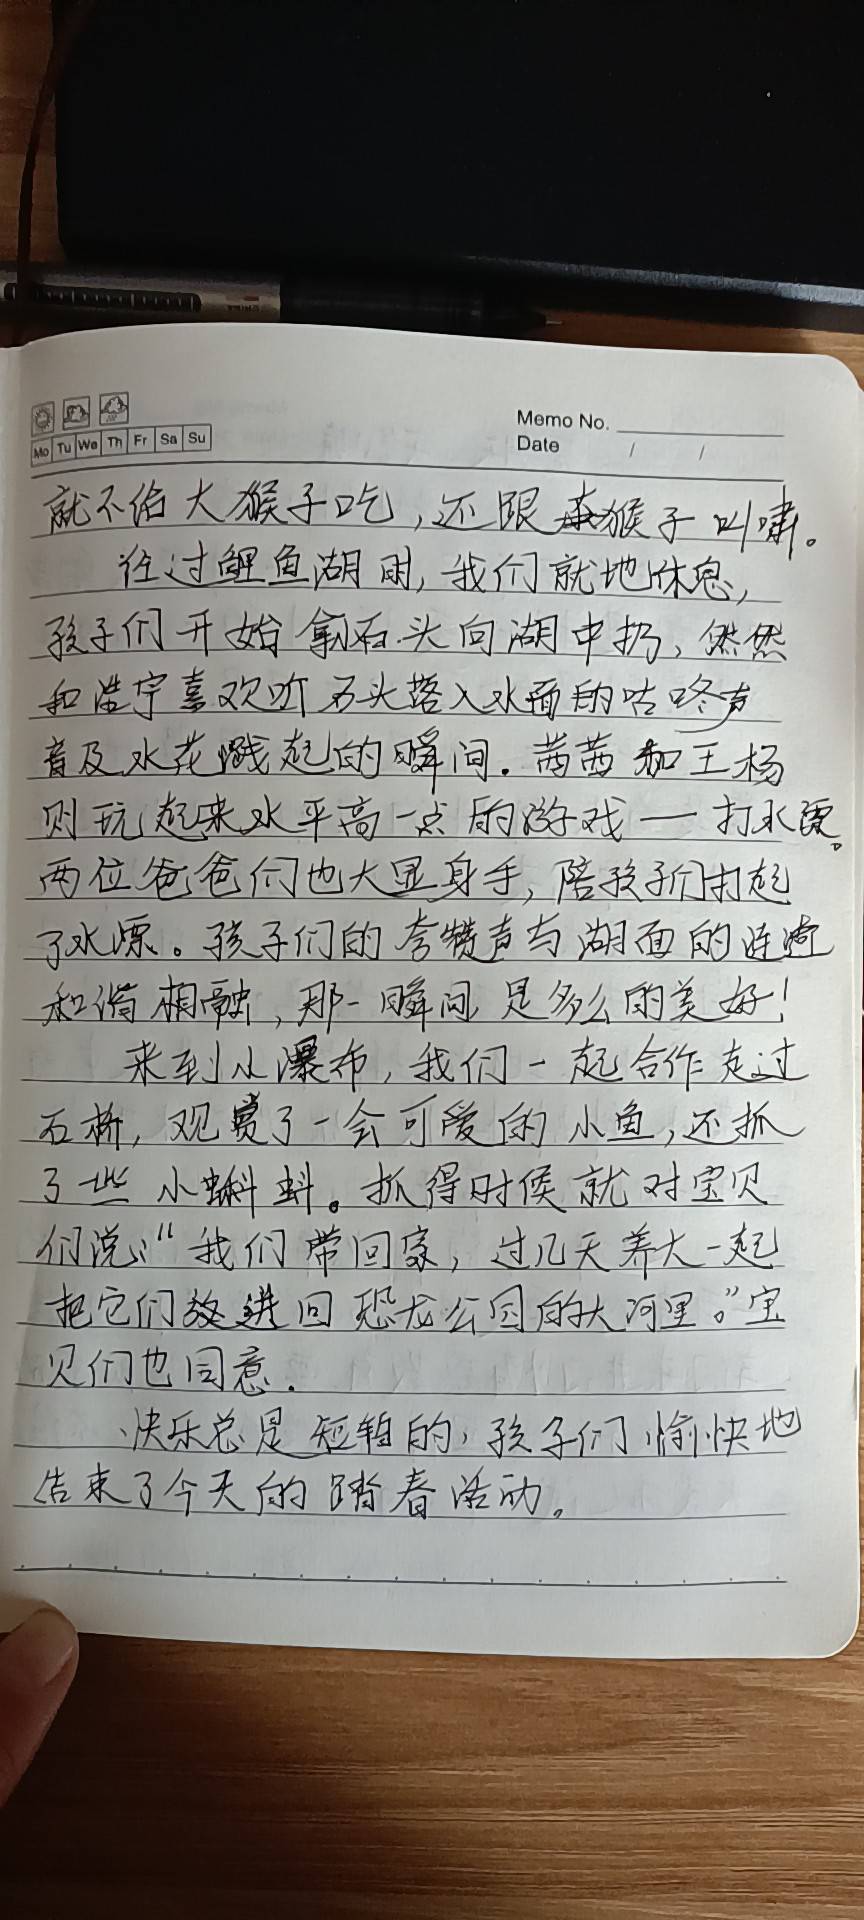 Memo No.
Mo Tu We Th Fr Sa Su
Date / /
就不给大猴子吃，还跟猴子叫啸。
径过鲤鱼湖时，我们就地休息，
孩子们开始拿石头向湖中扔，然然
和浩宇喜欢听石头落入水面的咕咚声
音及水花溅起的瞬间。茜茜和王杨
则玩起来水平高一点的游戏——打水漂。
两位爸爸们也大显身手，陪孩子们打起
了水漂。孩子们的夸赞声与湖面的涟漪
和谐相融，那一瞬间是多么的美好！
来到小瀑布，我们一起合作走过
石桥，观赏了一会可爱的小鱼，还抓
了些小蝌蚪。抓得时候就对宝贝
们说：“我们带回家，过几天养大一起
把它们放进回恐龙公园的大河里。”宝
贝们也同意。
快乐总是短暂的，孩子们愉快地
结束了今天的踏春活动。